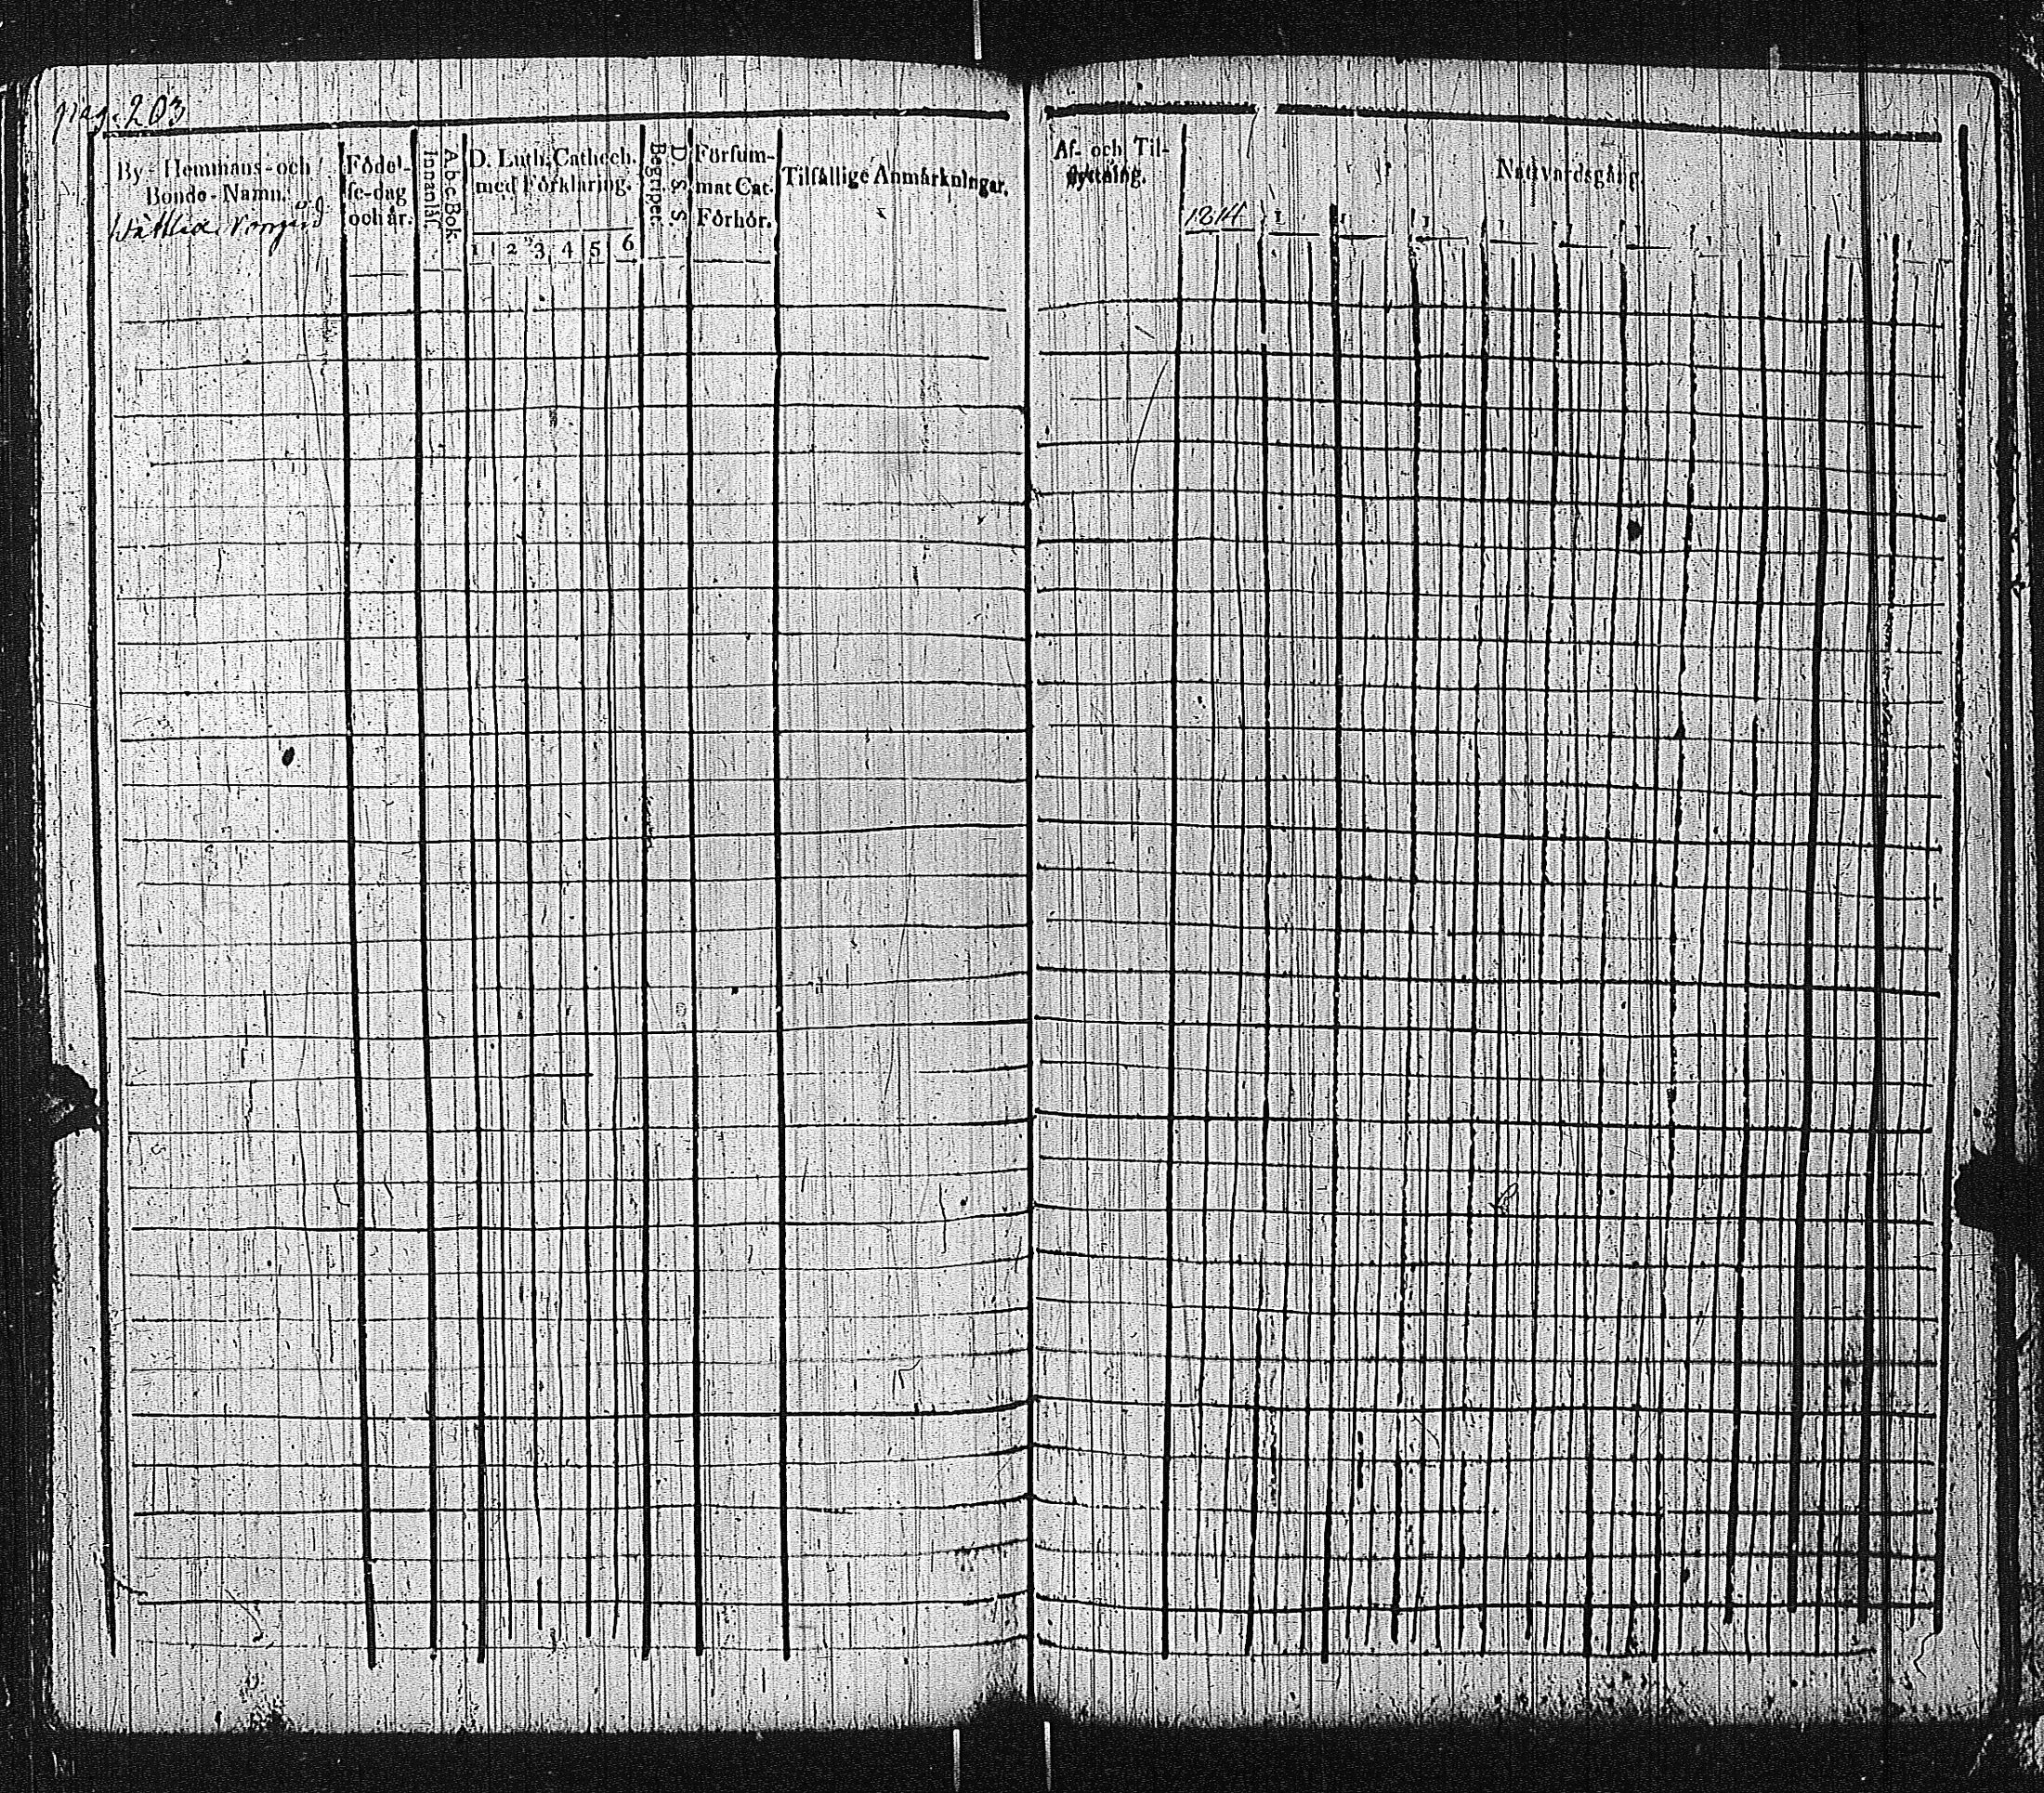 pag. 203
By- Hemmans- och
Bonde-Namn.
Norrgård
Födel-
se-dag
och år.
A b c Bok.
Innanläs.
D. Luth. Cathech.
med Förklaring.
1 2 3 4 5 6
D. S. S.
Begripet.
Försum-
mat Cat.
Förhör.
Tilfällige Anmärkningar.
Af- och Til-
flyttning.
Nattvardsgång.
1814 1 1 1 1 1 1 1 1 1 1